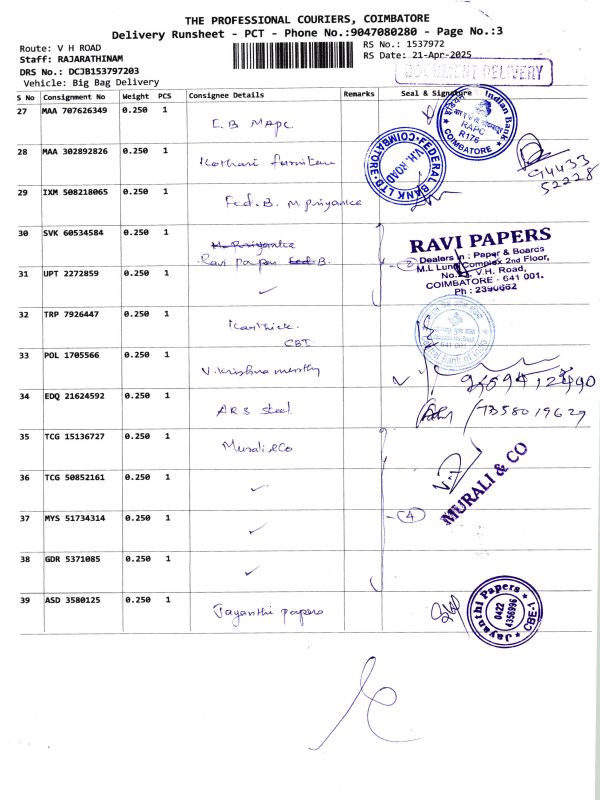 THE PROFESSIONAL COURIERS, COIMBATORE
Delivery Runsheet - PCT - Phone No.:9047080280 - Page No.:3
Route: V H ROAD
RS No.: 1537972
Staff: RAJARATHINAM
RS Date: 21-Apr-2025
DRS No.: DCJB153797203
Vehicle: Big Bag Delivery
DOCUMENT DELIVERY
S No Consignment No Weight PCS Consignee Details Remarks Seal & Signature
27 MAA 707626349 0.250 1 I.B MAPC
Indian Bank
RAPC
R176
COIMBATORE
28 MAA 302892826 0.250 1 Kothari furniture
FEDERAL BANK LTD. COIMBATORE
V.H. ROAD
94433
52228
29 IXM 508218065 0.250 1 Fed. B. M. Priyanka
30 SVK 60534584 0.250 1 M. Priyanka
Ravi paper Fed B.
2
RAVI PAPERS
Dealers in : Paper & Boards
M.L Complex 2nd Floor,
V.H. Road,
COIMBATORE - 641 001.
Ph : 2390662
31 UPT 2272859 0.250 1 ✓
32 TRP 7926447 0.250 1 Karthick
CBT
641 001
33 POL 1705566 0.250 1 V. Krishna murthy
34 EDQ 21624592 0.250 1 ARS steel
7358019629
35 TCG 15136727 0.250 1 Murali & Co
MURALI & CO
36 TCG 50852161 0.250 1 ✓
37 MYS 51734314 0.250 1 ✓
4
38 GDR 5371085 0.250 1 ✓
39 ASD 3580125 0.250 1 Jayanthi papers
Jayanthi Papers
0422
4356996
CBE-1